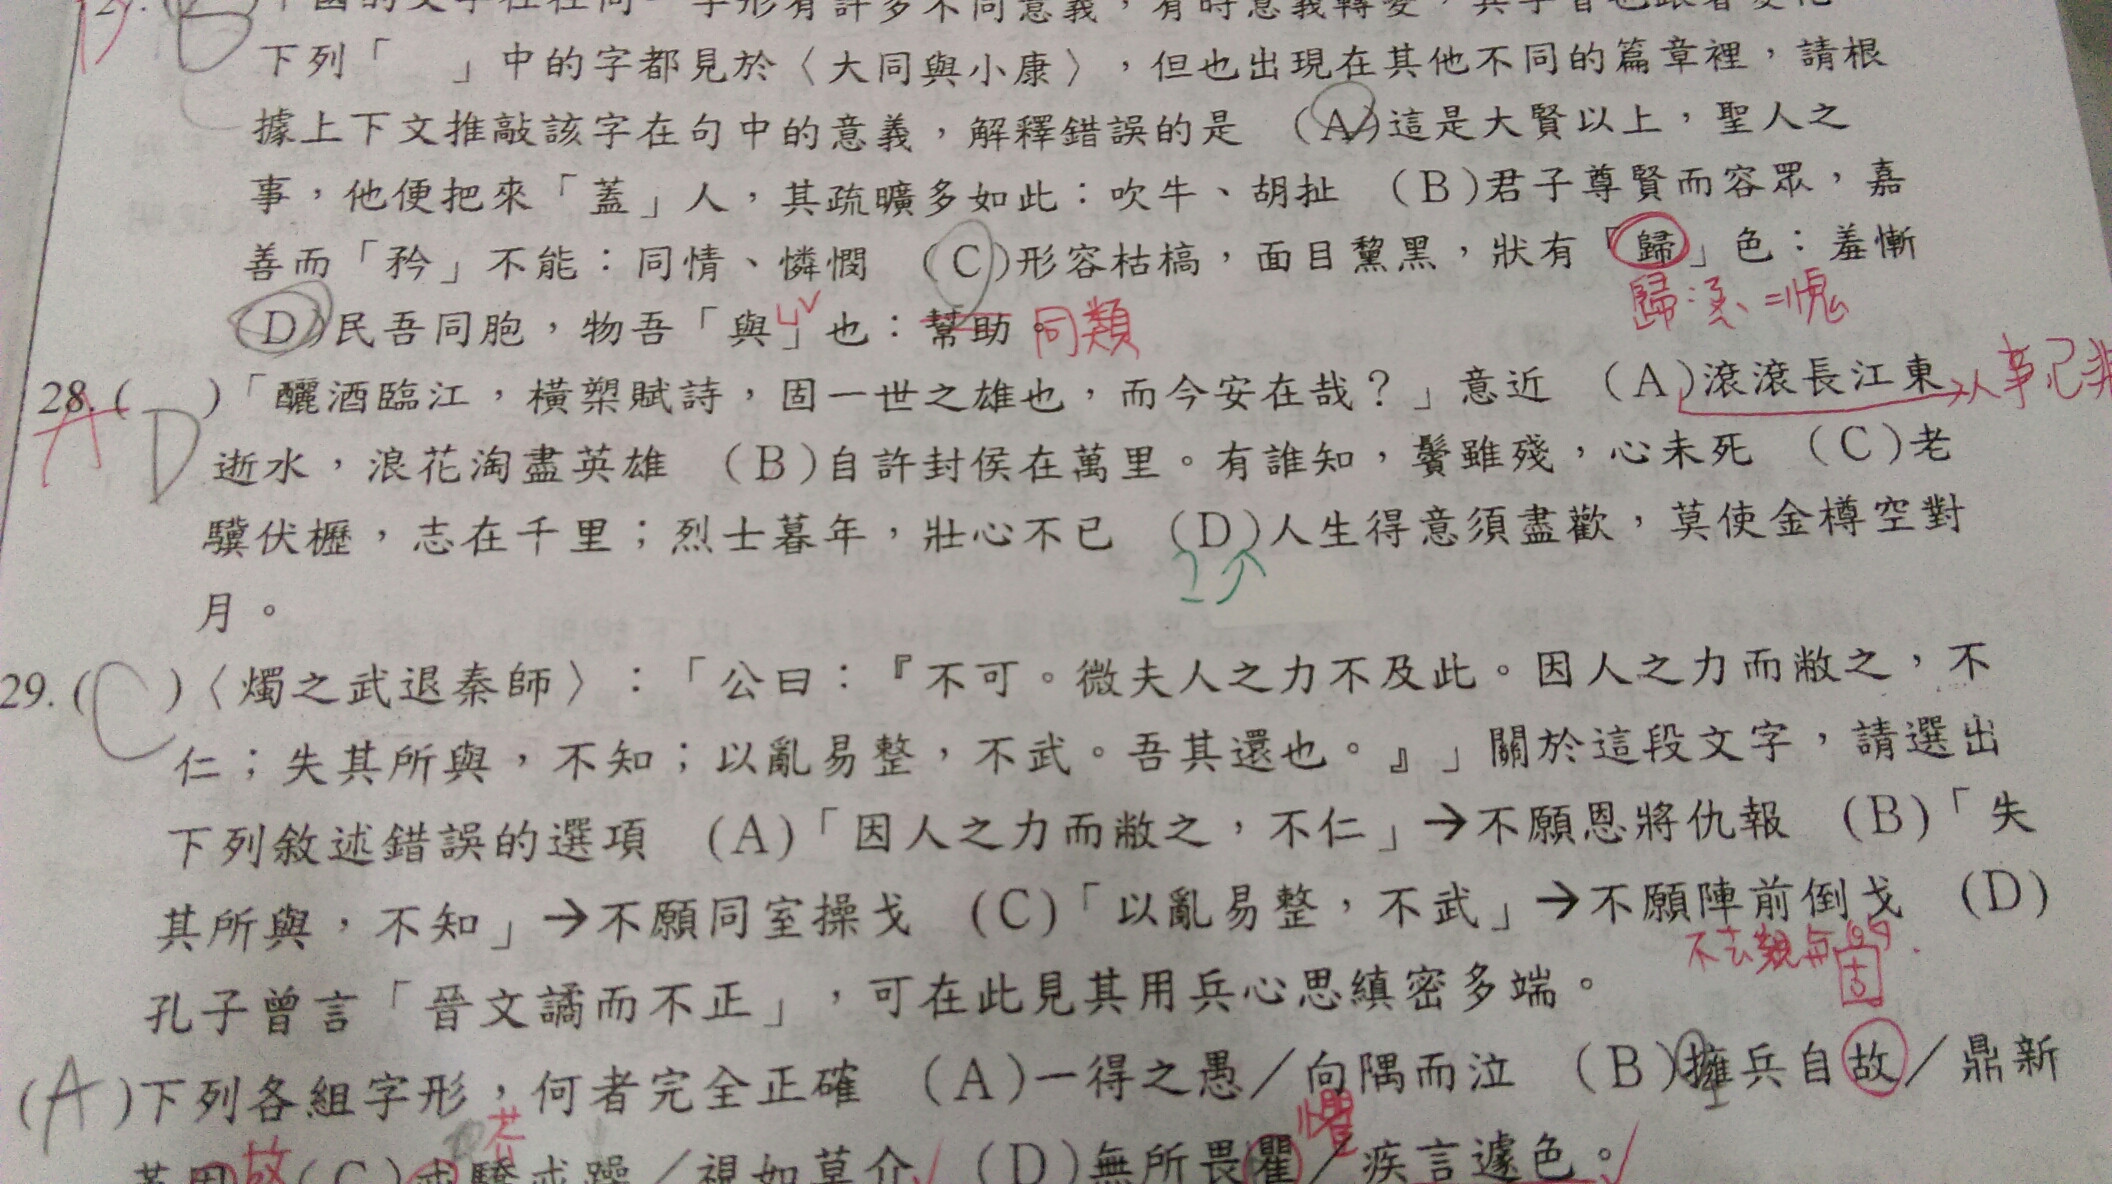 下列「　」中的字都見於〈大同與小康〉，但也出現在其他不同的篇章裡，請根
據上下文推敲該字在句中的意義，解釋錯誤的是 (A)這是大賢以上，聖人之
事，他便把來「蓋」人，其疏曠多如此：吹牛、胡扯 (B)君子尊賢而容眾，嘉
善而「矜」不能：同情、憐憫 (C)形容枯槁，面目黧黑，狀有「歸」色：羞慚
歸 =愧
(D)民吾同胞，物吾「與」也：幫助。 同類
28.( D )「釃酒臨江，橫槊賦詩，固一世之雄也，而今安在哉？」意近 (A)滾滾長江東
A
逝水，浪花淘盡英雄 (B)自許封侯在萬里。有誰知，鬢雖殘，心未死 (C)老
驥伏櫪，志在千里；烈士暮年，壯心不已 (D)人生得意須盡歡，莫使金樽空對
月。
29.( C )〈燭之武退秦師〉：「公曰：『不可。微夫人之力不及此。因人之力而敝之，不
仁；失其所與，不知；以亂易整，不武。吾其還也。』」關於這段文字，請選出
下列敘述錯誤的選項 (A)「因人之力而敝之，不仁」→不願恩將仇報 (B)「失
其所與，不知」→不願同室操戈 (C)「以亂易整，不武」→不願陣前倒戈 (D)
孔子曾言「晉文譎而不正」，可在此見其用兵心思縝密多端。
( A )下列各組字形，何者完全正確 (A)一得之愚／向隅而泣 (B)擁兵自故／鼎新
懼
故 (C)戒驕戒躁／視如草介 (D)無所畏瞿／疾言遽色。